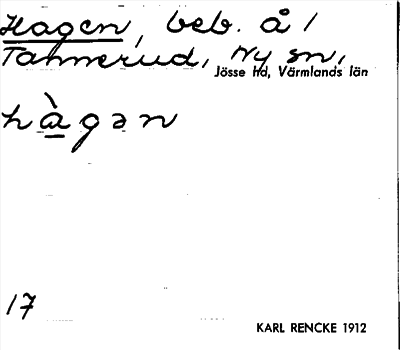 Hagen, beb. å /
Tannerud, Ny sn,
Jösse hd, Värmlands län
hàgən
17
KARL RENCKE 1912